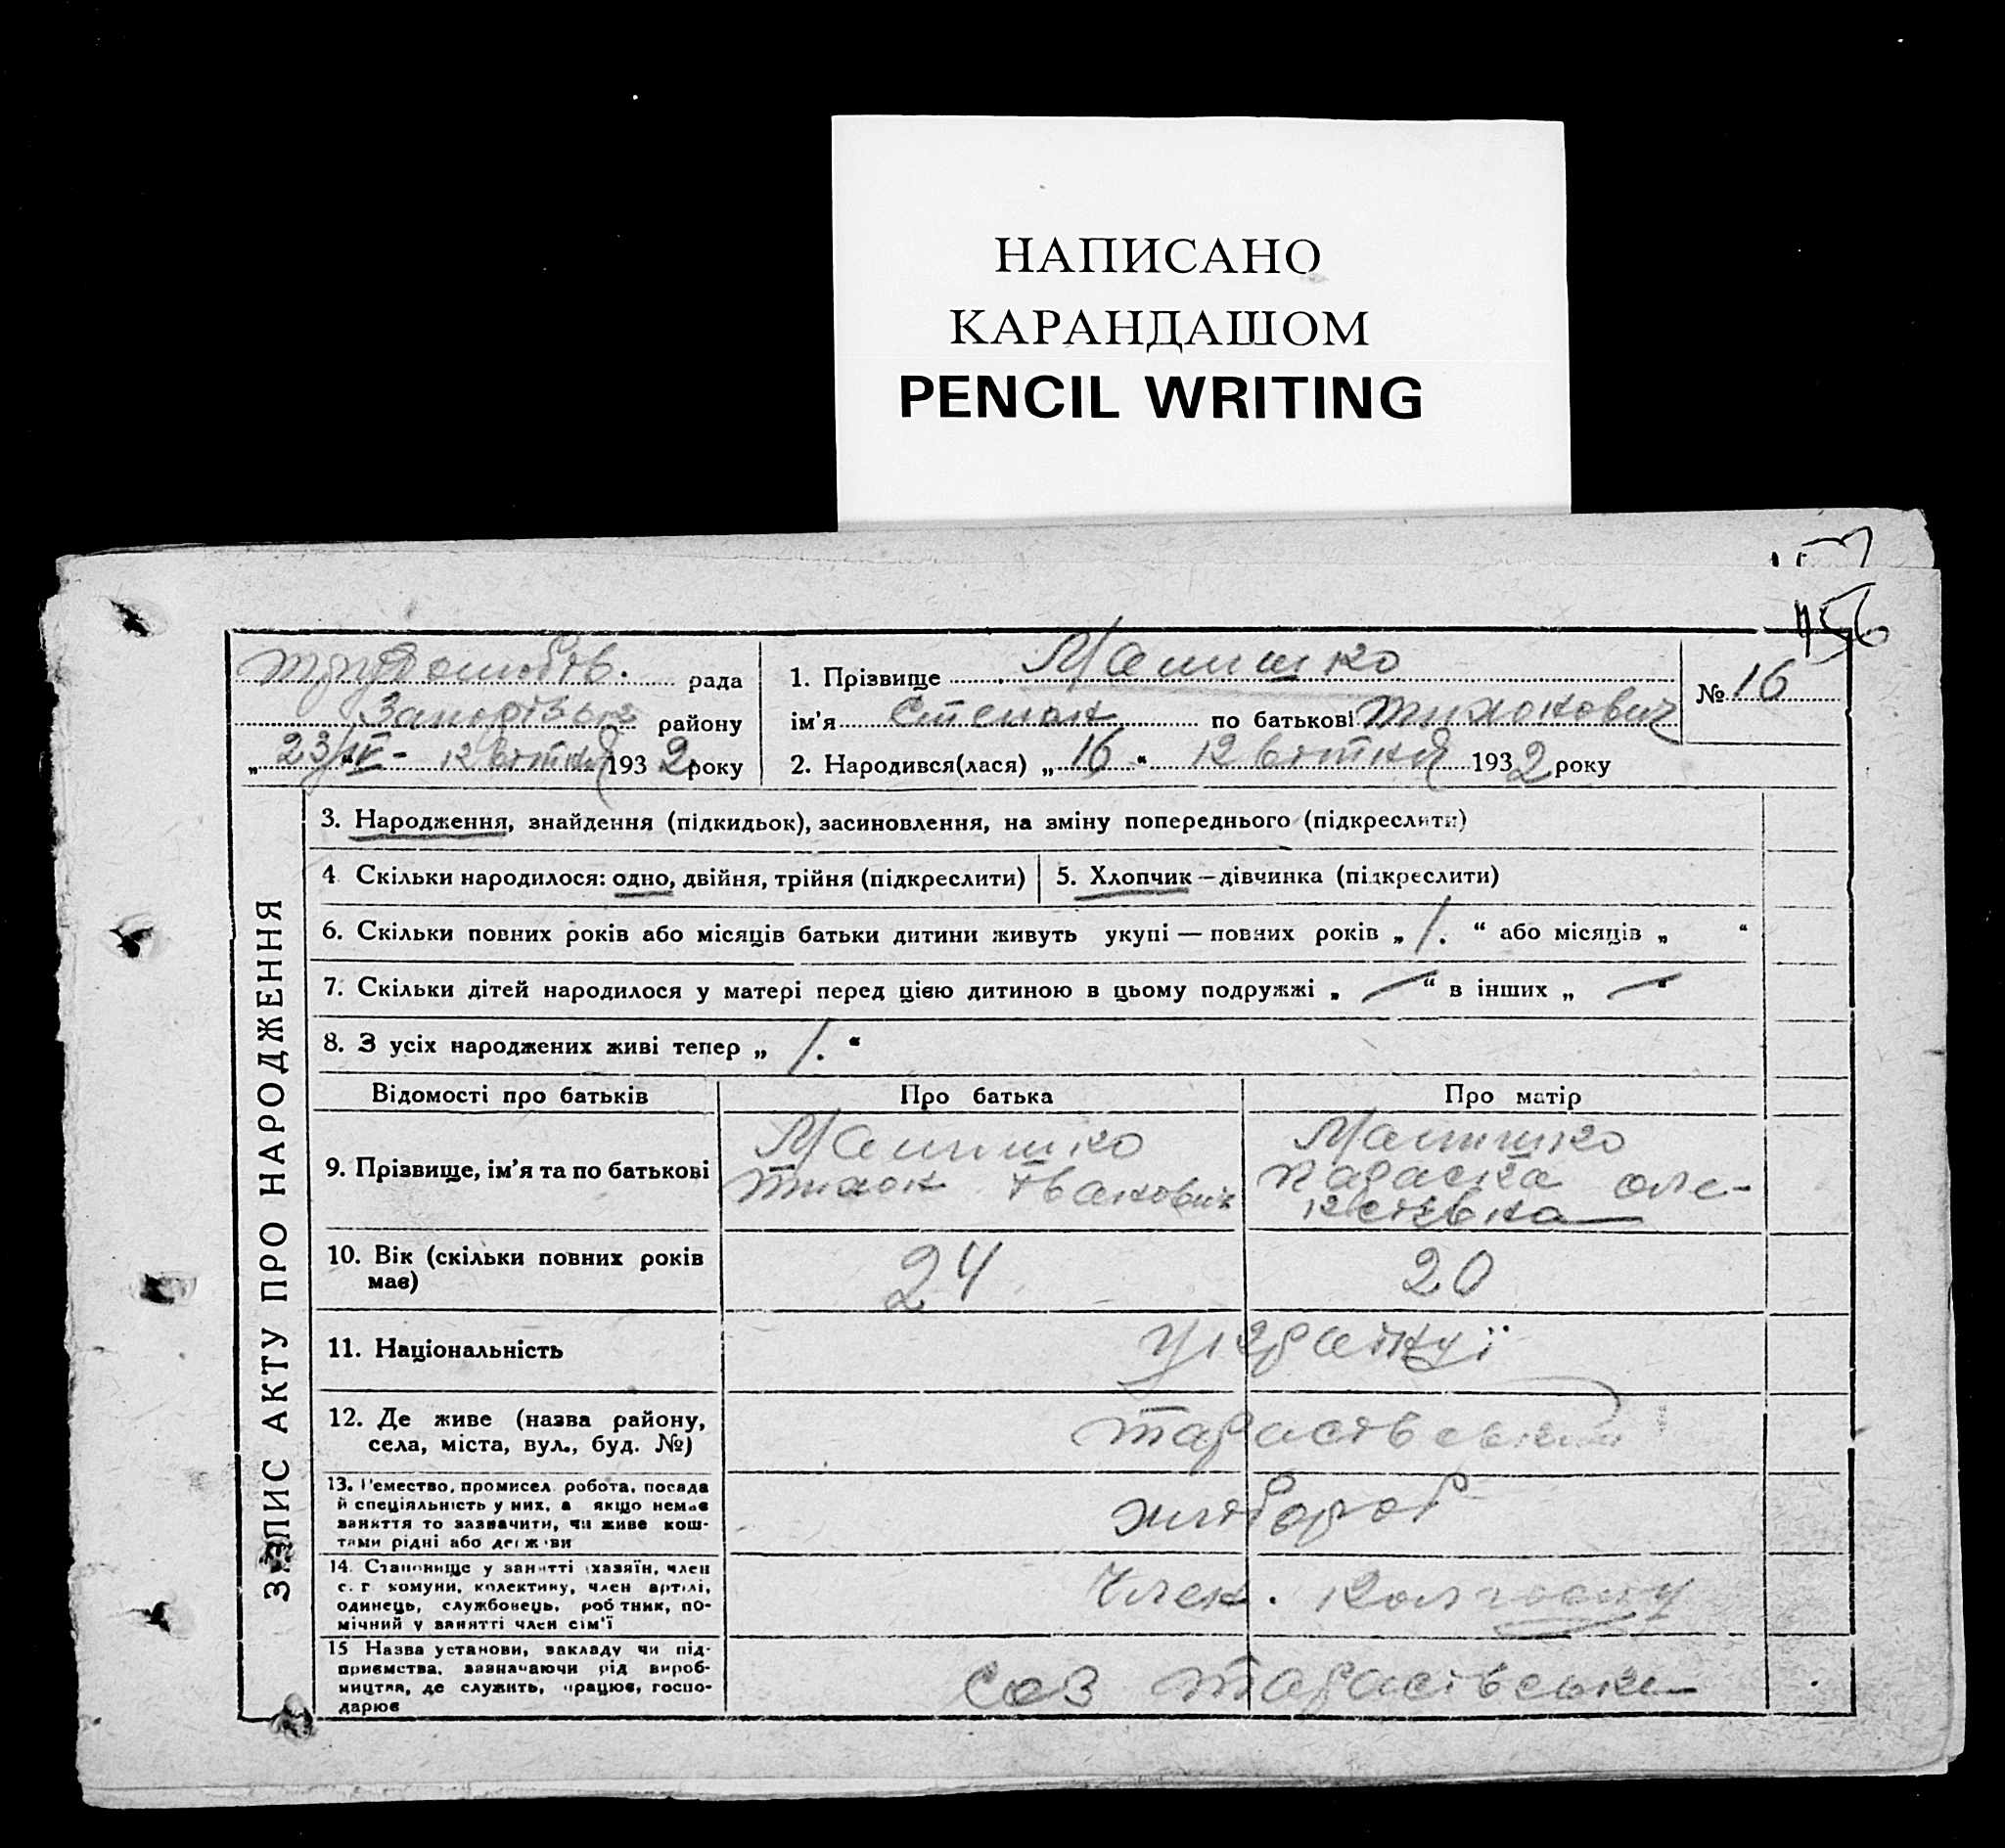 НАПИСАНО
КАРАНДАШОМ
PENCIL WRITING
156
рада
району
„23/IV - квітня 1932 року
1. Прізвище Малишко
ім'я Степан по батькові Тихонович
2. Народився(лася) „16“ квітня 1932 року
№ 16
ЗАПИС АКТУ ПРО НАРОДЖЕННЯ
3. Народження, знайдення (підкидьок), засиновлення, на зміну попереднього (підкреслити)
4 Скільки народилося: одно, двійня, трійня (підкреслити)
5. Хлопчик – дівчинка (підкреслити)
6. Скільки повних років або місяців батьки дитини живуть укупі — повних років „ 1. “ або місяців „ “
7. Скільки дітей народилося у матері перед цією дитиною в цьому подружжі „ — “ в інших „ — “
8. З усіх народжених живі тепер „ 1. “
Відомості про батьків
Про батька
Про матір
9. Прізвище, ім'я та по батькові
Малишко
Тихон Іванович
Малишко
Параска Оле-
ксіівна
10. Вік (скільки повних років
має)
24
20
11. Національність
12. Де живе (назва району,
села, міста, вул., буд. №)
13. Ремество, промисел робота, посада
й спеціяльність у них, а якщо немає
заняття то зазначити, чи живе кош-
тами рідні або держави
хлібороб
14. Становище у занятті (хазяїн, член
с. г. комуни, колективу, член артілі,
одинець, службовець, робітник, по-
мічний у занятті член сім'ї
Член. колгоспу
15 Назва установи, закладу чи під-
приємства, зазначаючи рід вироб-
ництва, де служить, працює, госпо-
дарює
Соз